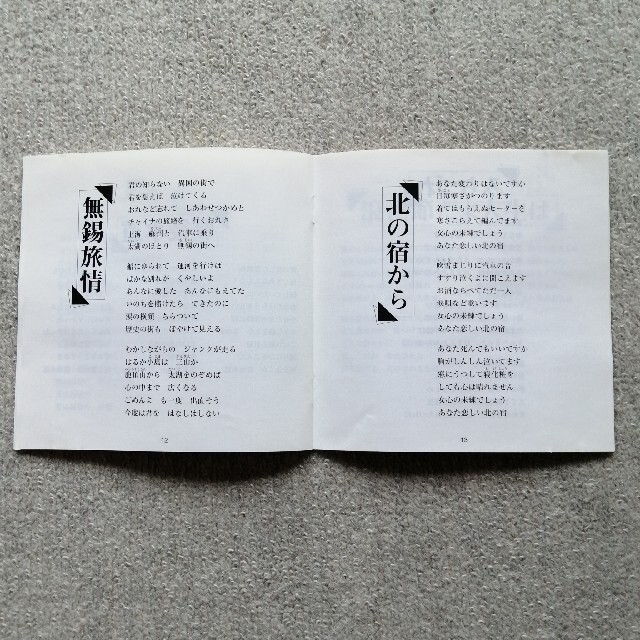 無錫旅情
君の知らない 異国の街で
君を想えば 泣けてくる
おれなど忘れて しあわせつかめと
チャイナの旅路を 行くおれさ
上海 蘇州と 汽車に乗り
太湖のほとり 無錫の街へ
船にゆられて 運河を行けば
ばかな別れが くやしいよ
あんなに愛した あんなにもえてた
いのちを賭けたら できたのに
涙の横顔 ちらついて
歴史の街も ぼやけて見える
むかしながらの ジャンクが走る
はるか小島は 三山か
鹿頂山から 太湖をのぞめば
心の中まで 広くなる
ごめんよ も一度 出直そう
今度は君を はなしはしない
12
北の宿から
あなた変わりはないですか
日毎寒さがつのります
着てはもらえぬセーターを
寒さこらえて編んでます
女心の未練でしょう
あなた恋しい北の宿
吹雪まじりに汽車の音
すすり泣くよに聞こえます
お酒ならべてただ一人
涙唄など歌います
女心の未練でしょう
あなた恋しい北の宿
あなた死んでもいいですか
胸がしんしん泣いてます
窓にうつして寝化粧を
しても心は晴れません
女心の未練でしょう
あなた恋しい北の宿
13